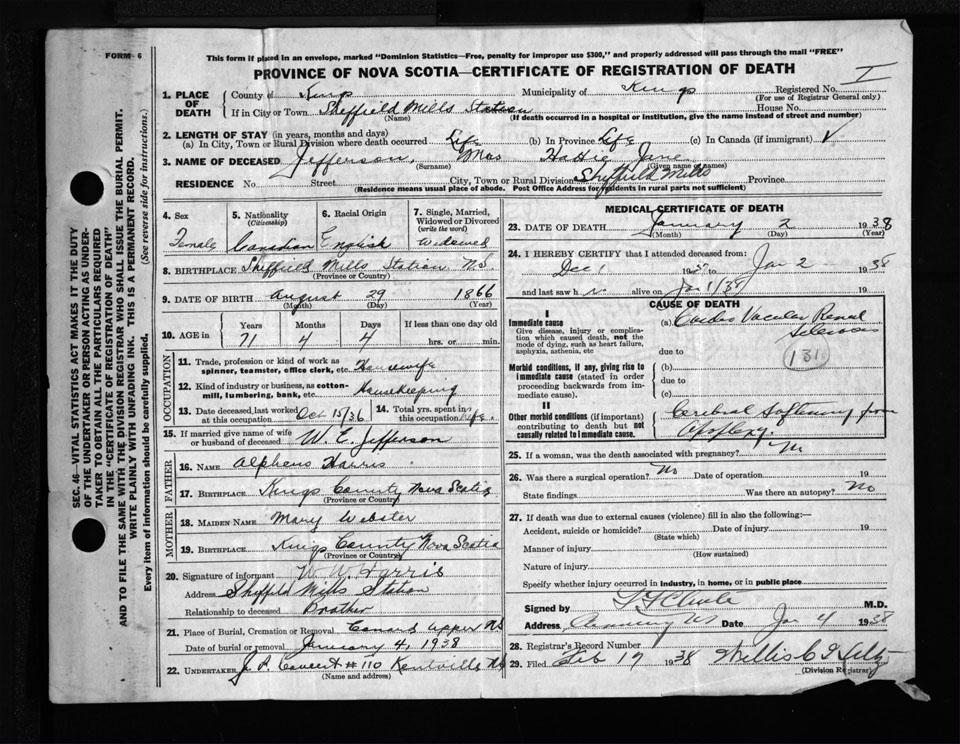 FORM 6
This form if placed in an envelope, marked "Dominion Statistics—Free, penalty for improper use $300," and properly addressed will pass through the mail "FREE"
PROVINCE OF NOVA SCOTIA—CERTIFICATE OF REGISTRATION OF DEATH
I
1. PLACE OF DEATH
County of Kings Municipality of Kings Registered No.
(For use of Registrar General only)
If in City or Town Sheffield Mills Station House No.
(Name) (If death occurred in a hospital or institution, give the name instead of street and number)
2. LENGTH OF STAY (in years, months and days)
(a) In City, Town or Rural Division where death occurred Life (b) In Province Life (c) In Canada (if immigrant)
3. NAME OF DECEASED Jefferson, Mrs Hattie Jane
(Surname) (Given name or names)
RESIDENCE No. Street City, Town or Rural Division Sheffield Mills Province
(Residence means usual place of abode. Post Office Address for residents in rural parts not sufficient)
4. Sex Female
5. Nationality (Citizenship) Canadian
6. Racial Origin English
7. Single, Married, Widowed or Divorced (write the word) Widowed
8. BIRTHPLACE Sheffield Mills Station N.S.
(Province or Country)
9. DATE OF BIRTH August 29 1866
(Month) (Day) (Year)
10. AGE in Years Months Days If less than one day old
71 4 4 hrs. or min.
OCCUPATION
11. Trade, profession or kind of work as spinner, teamster, office clerk, etc. Housewife
12. Kind of industry or business, as cotton-mill, lumbering, bank, etc. Housekeeping
13. Date deceased last worked at this occupation Oct 15/36
14. Total yrs. spent in this occupation Life.
15. If married give name of wife or husband of deceased W. E. Jefferson
FATHER
16. NAME Alpheus Harris
17. BIRTHPLACE Kings County Nova Scotia
(Province or Country)
MOTHER
18. MAIDEN NAME Mary Webster
19. BIRTHPLACE Kings County Nova Scotia
(Province or Country)
20. Signature of informant W. W. Harris
Address Sheffield Mills Station
Relationship to deceased Brother
21. Place of Burial, Cremation or Removal Canard Upper N.S
Date of burial or removal January 4, 1938
22. UNDERTAKER J. P. #110 Kentville N.S
(Name and address)
MEDICAL CERTIFICATE OF DEATH
23. DATE OF DEATH January 2 1938
(Month) (Day) (Year)
24. I HEREBY CERTIFY that I attended deceased from:
Dec 1 19 to Jan 2 1938
and last saw h alive on Jan 1/38 19
CAUSE OF DEATH
I
Immediate cause
Give disease, injury or complication which caused death, not the mode of dying, such as heart failure, asphyxia, asthenia, etc
(a) Cardio Vascular Renal
Sclerosis
131
due to
Morbid conditions, if any, giving rise to immediate cause (stated in order proceeding backwards from immediate cause).
(b)
due to
(c)
II
Other morbid conditions (if important) contributing to death but not causally related to immediate cause.
Cerebral Softening from
Apoplexy.
25. If a woman, was the death associated with pregnancy? No
26. Was there a surgical operation? No Date of operation 19
State findings Was there an autopsy? No
27. If death was due to external causes (violence) fill in also the following:—
Accident, suicide or homicide? Date of injury 19
(State which)
Manner of injury
(How sustained)
Nature of injury
Specify whether injury occurred in industry, in home, or in public place
Signed by M.D.
Address Canning NS Date Jan 4 1938
28. Registrar's Record Number
29. Filed Feb 17 1938 Willis C
(Division Registrar)
SEC. 46—VITAL STATISTICS ACT MAKES IT THE DUTY OF THE UNDERTAKER OR PERSON ACTING AS UNDERTAKER TO OBTAIN ALL THE PARTICULARS REQUIRED IN THE "CERTIFICATE OF REGISTRATION OF DEATH"
AND TO FILE THE SAME WITH THE DIVISION REGISTRAR WHO SHALL ISSUE THE BURIAL PERMIT.
WRITE PLAINLY WITH UNFADING INK. THIS IS A PERMANENT RECORD.
Every item of information should be carefully supplied. (See reverse side for instructions.)